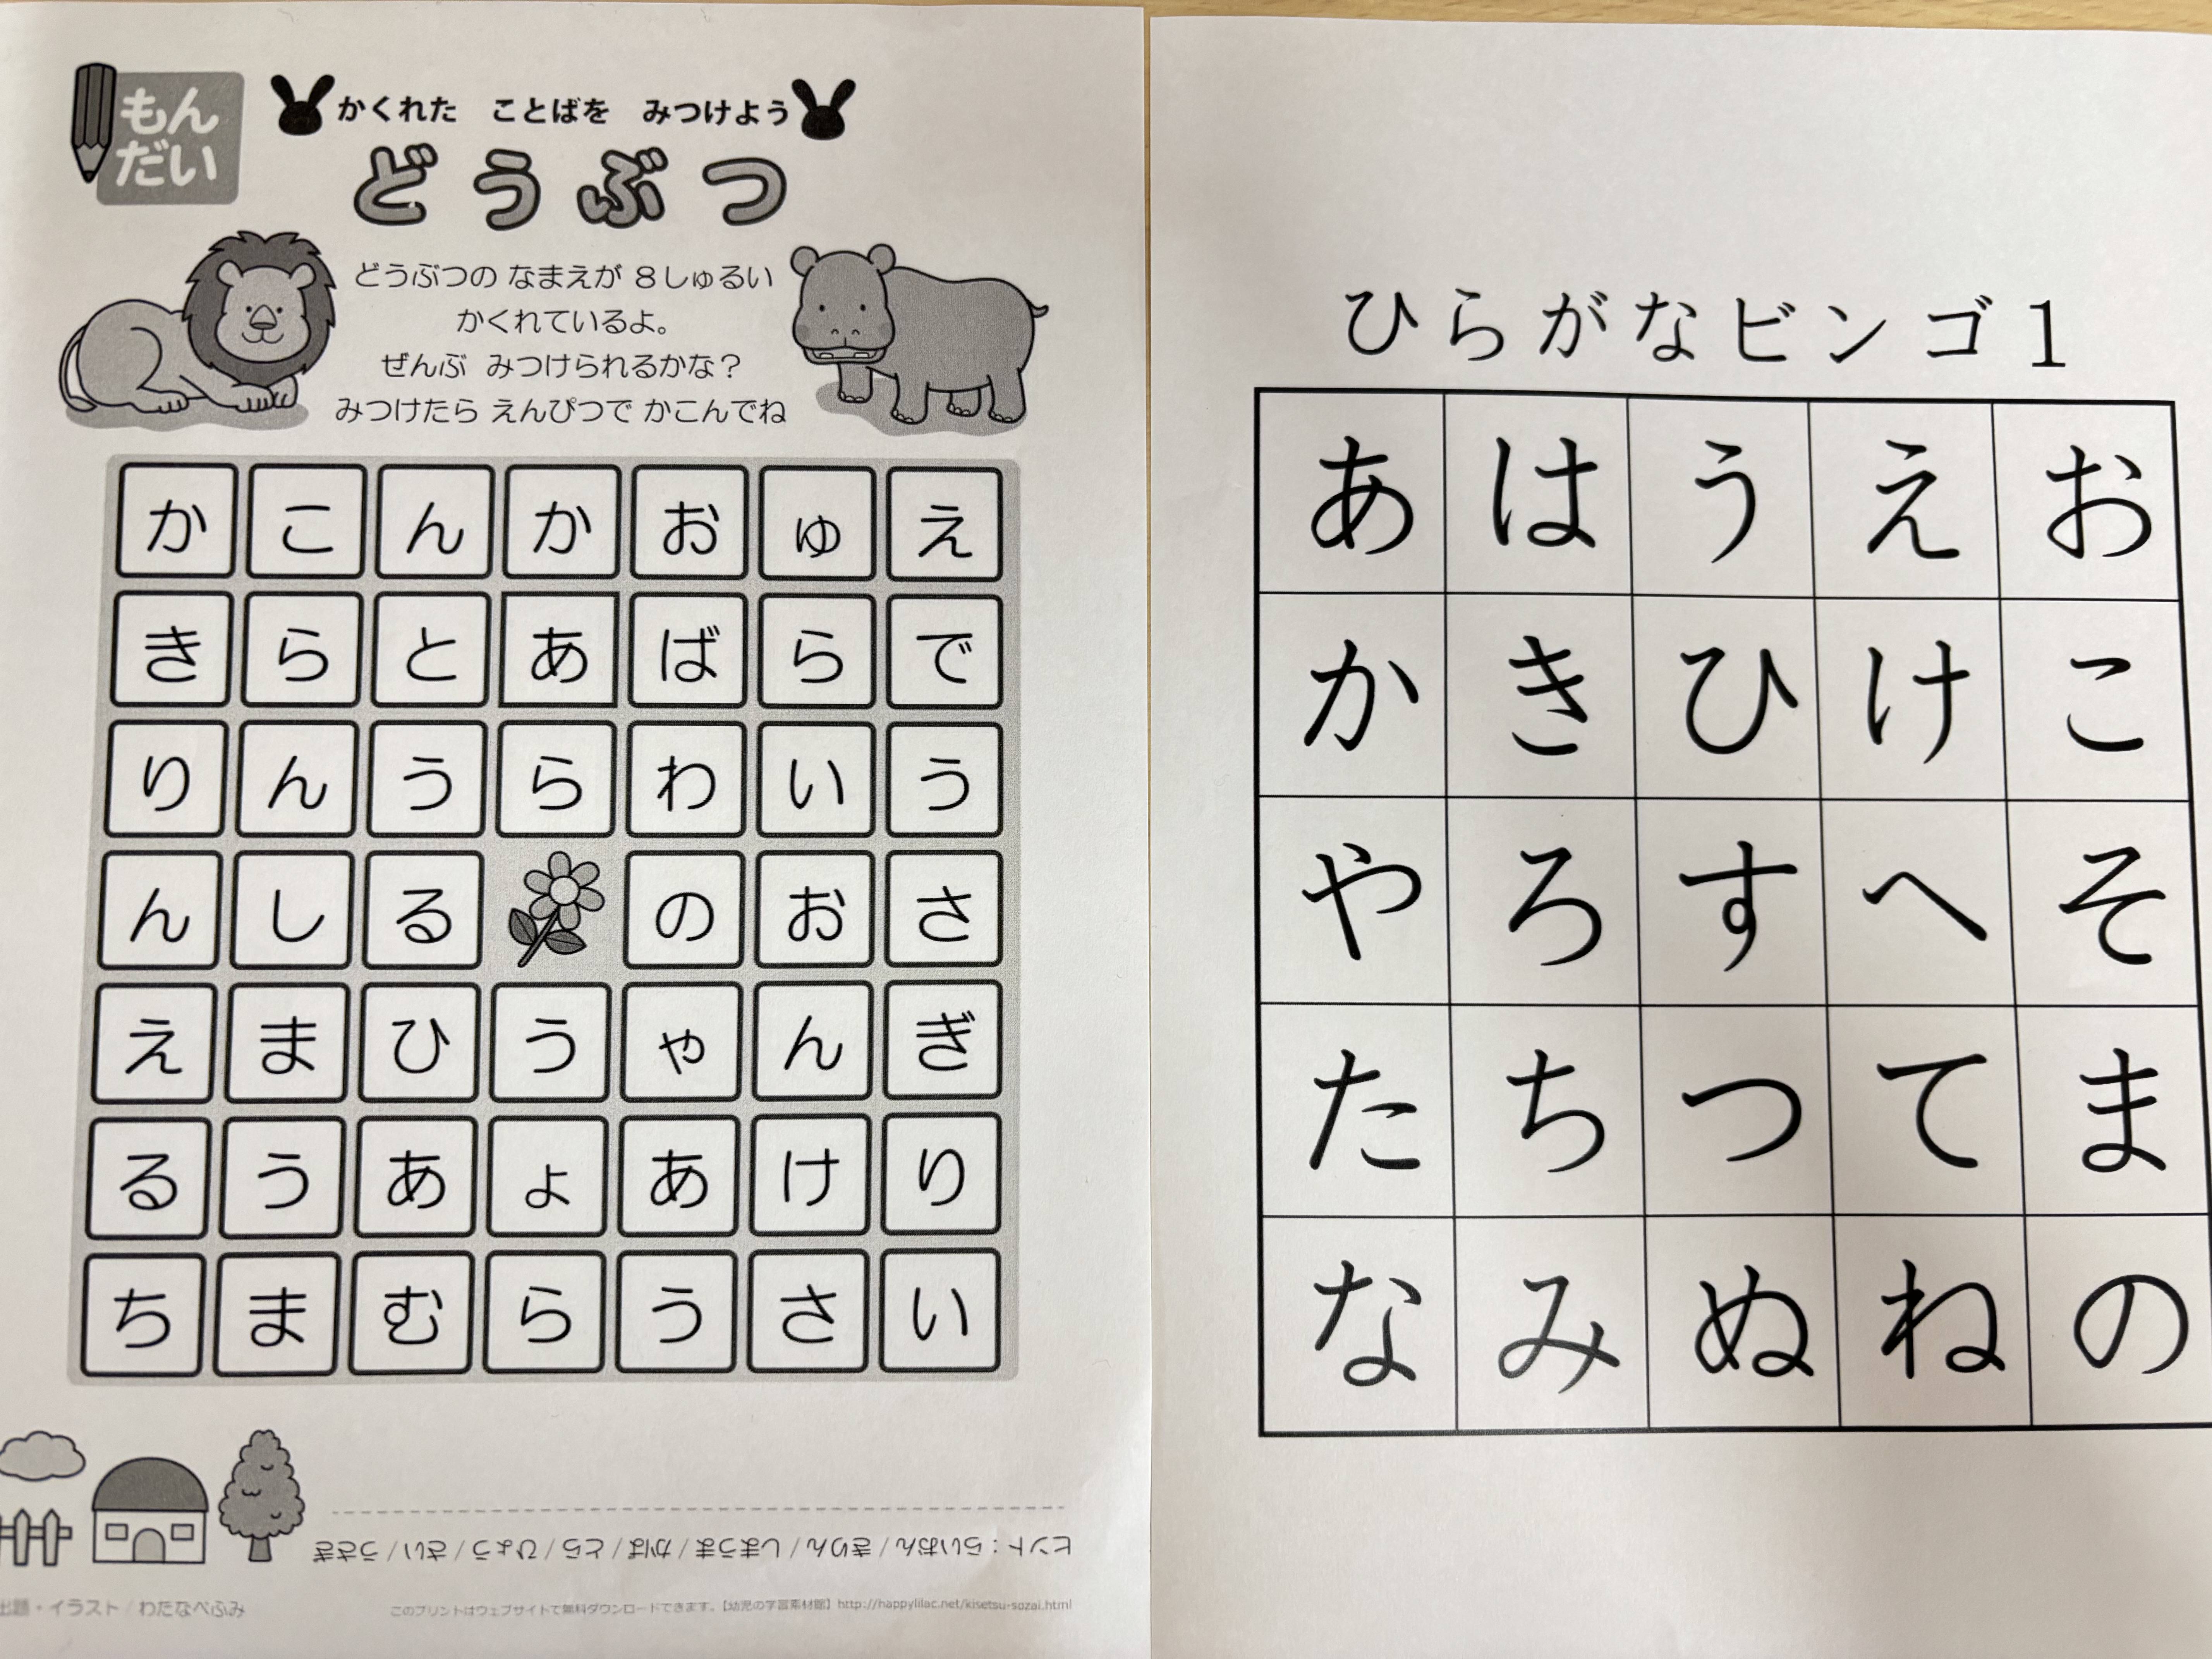 もん
だい
かくれた ことばを みつけよう
どうぶつ
どうぶつの なまえが 8しゅるい
かくれているよ。
ぜんぶ みつけられるかな?
みつけたら えんぴつで かこんでね
か こ ん か お ゅ え
き ら と あ ば ら で
り ん う ら わ い う
ん し る の お さ
え ま ひ う ゃ ん ぎ
る う あ ょ あ け り
ち ま む ら う さ い
ヒント:らいおん/きりん/しまうま/かば/とら/ひょう/さい/うさぎ
出題・イラスト/わたなべふみ
このプリントはウェブサイトで無料ダウンロードできます。【幼児の学習素材館】http://happylilac.net/kisetsu-sozai.html
ひらがなビンゴ1
あ は う え お
か き ひ け こ
や ろ す へ そ
た ち つ て ま
な み ぬ ね の